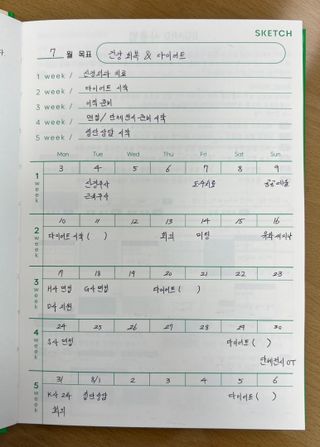 SKETCH
7 월 목표 건강 회복 & 다이어트
1 week / 신경외과 치료
2 week / 다이어트 시작
3 week / 이직 준비
4 week / 면접 / 단체전시 준비 시작
5 week / 심리 상담 시작
Mon Tue Wed Thu Fri Sat Sun
1 week
3 4 5 6 7 8 9
신경주사 도수치료
근육주사
2 week
10 11 12 13 14 15 16
다이어트 시작 ( ) 회의 미팅 유화 세미나
3 week
17 18 19 20 21 22 23
H사 면접 G사 면접 다이어트 ( )
D사 지원
4 week
24 25 26 27 28 29 30
S사 면접 다이어트 ( )
단체전시 OT
5 week
31 8/1 2 3 4 5 6
K사 2차 심리상담 다이어트 ( )
회의